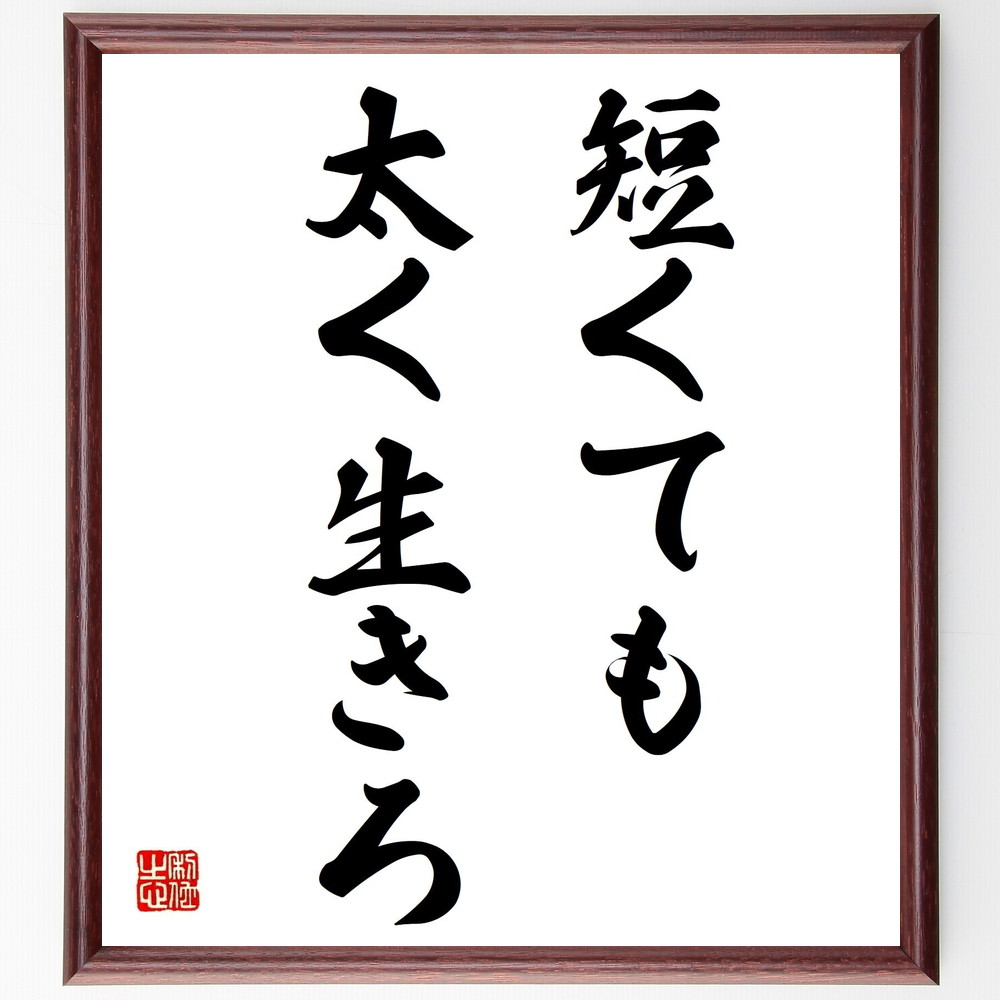 短くても
太く生きろ